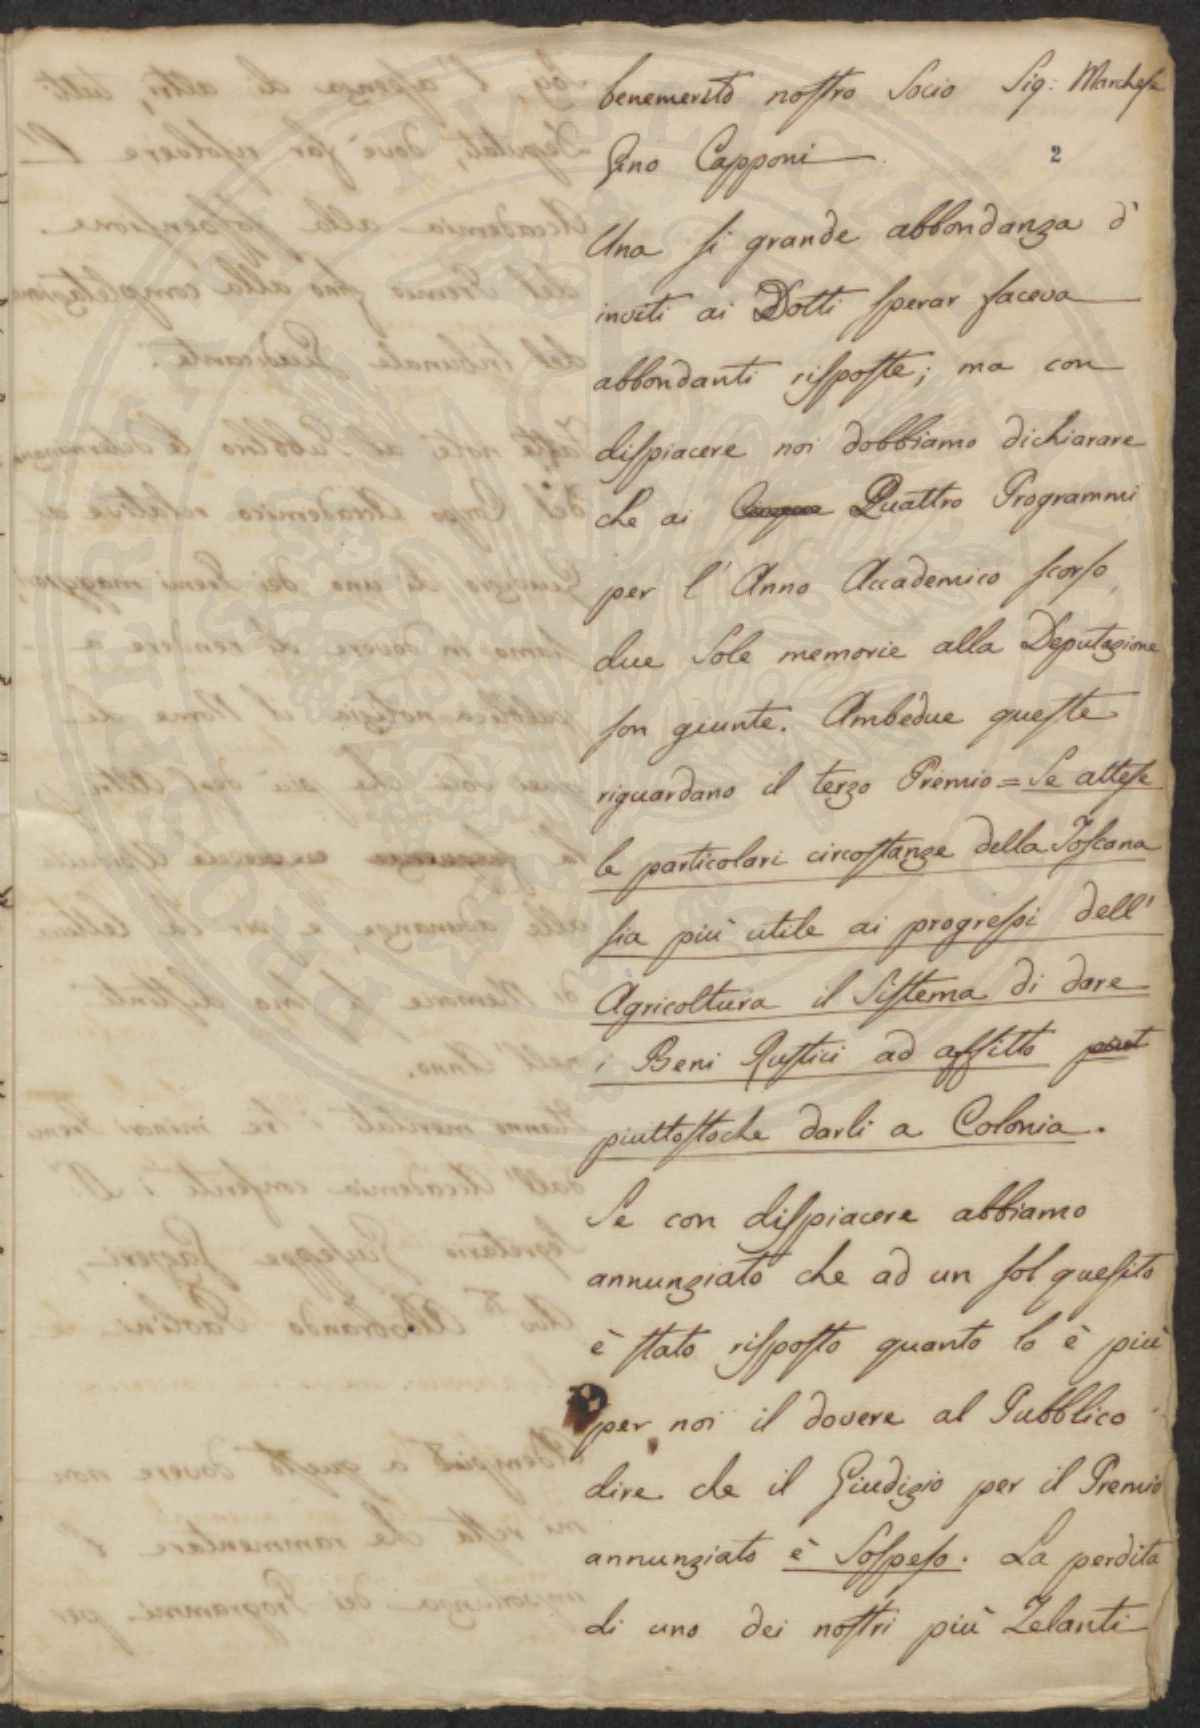 benemerito nostro Socio Sig: Marchese
Gino Capponi
2
Una si grande abbondanza d'
inviti ai Dotti sperar faceva
abbondanti risposte; ma con
dispiacere noi dobbiamo dichiarare
che ai Cinque Quattro Programmi
per l'Anno Accademico scorso
due Sole memorie alla Deputazione
son giunte. Ambedue queste
riguardano il terzo Premio = Se attese
le particolari circostanze della Toscana
sia più utile ai progressi dell'
Agricoltura il Sistema di dare
i Beni Rustici ad affitto piut
piuttostoche darli a Colonia.
Se con dispiacere abbiamo
annunziato che ad un sol quesito
è stato risposto quanto lo è più
per noi il dovere al Pubblico
dire che il Giudizio per il Premio
annunziato è Sospeso. La perdita
di uno dei nostri più Zelanti